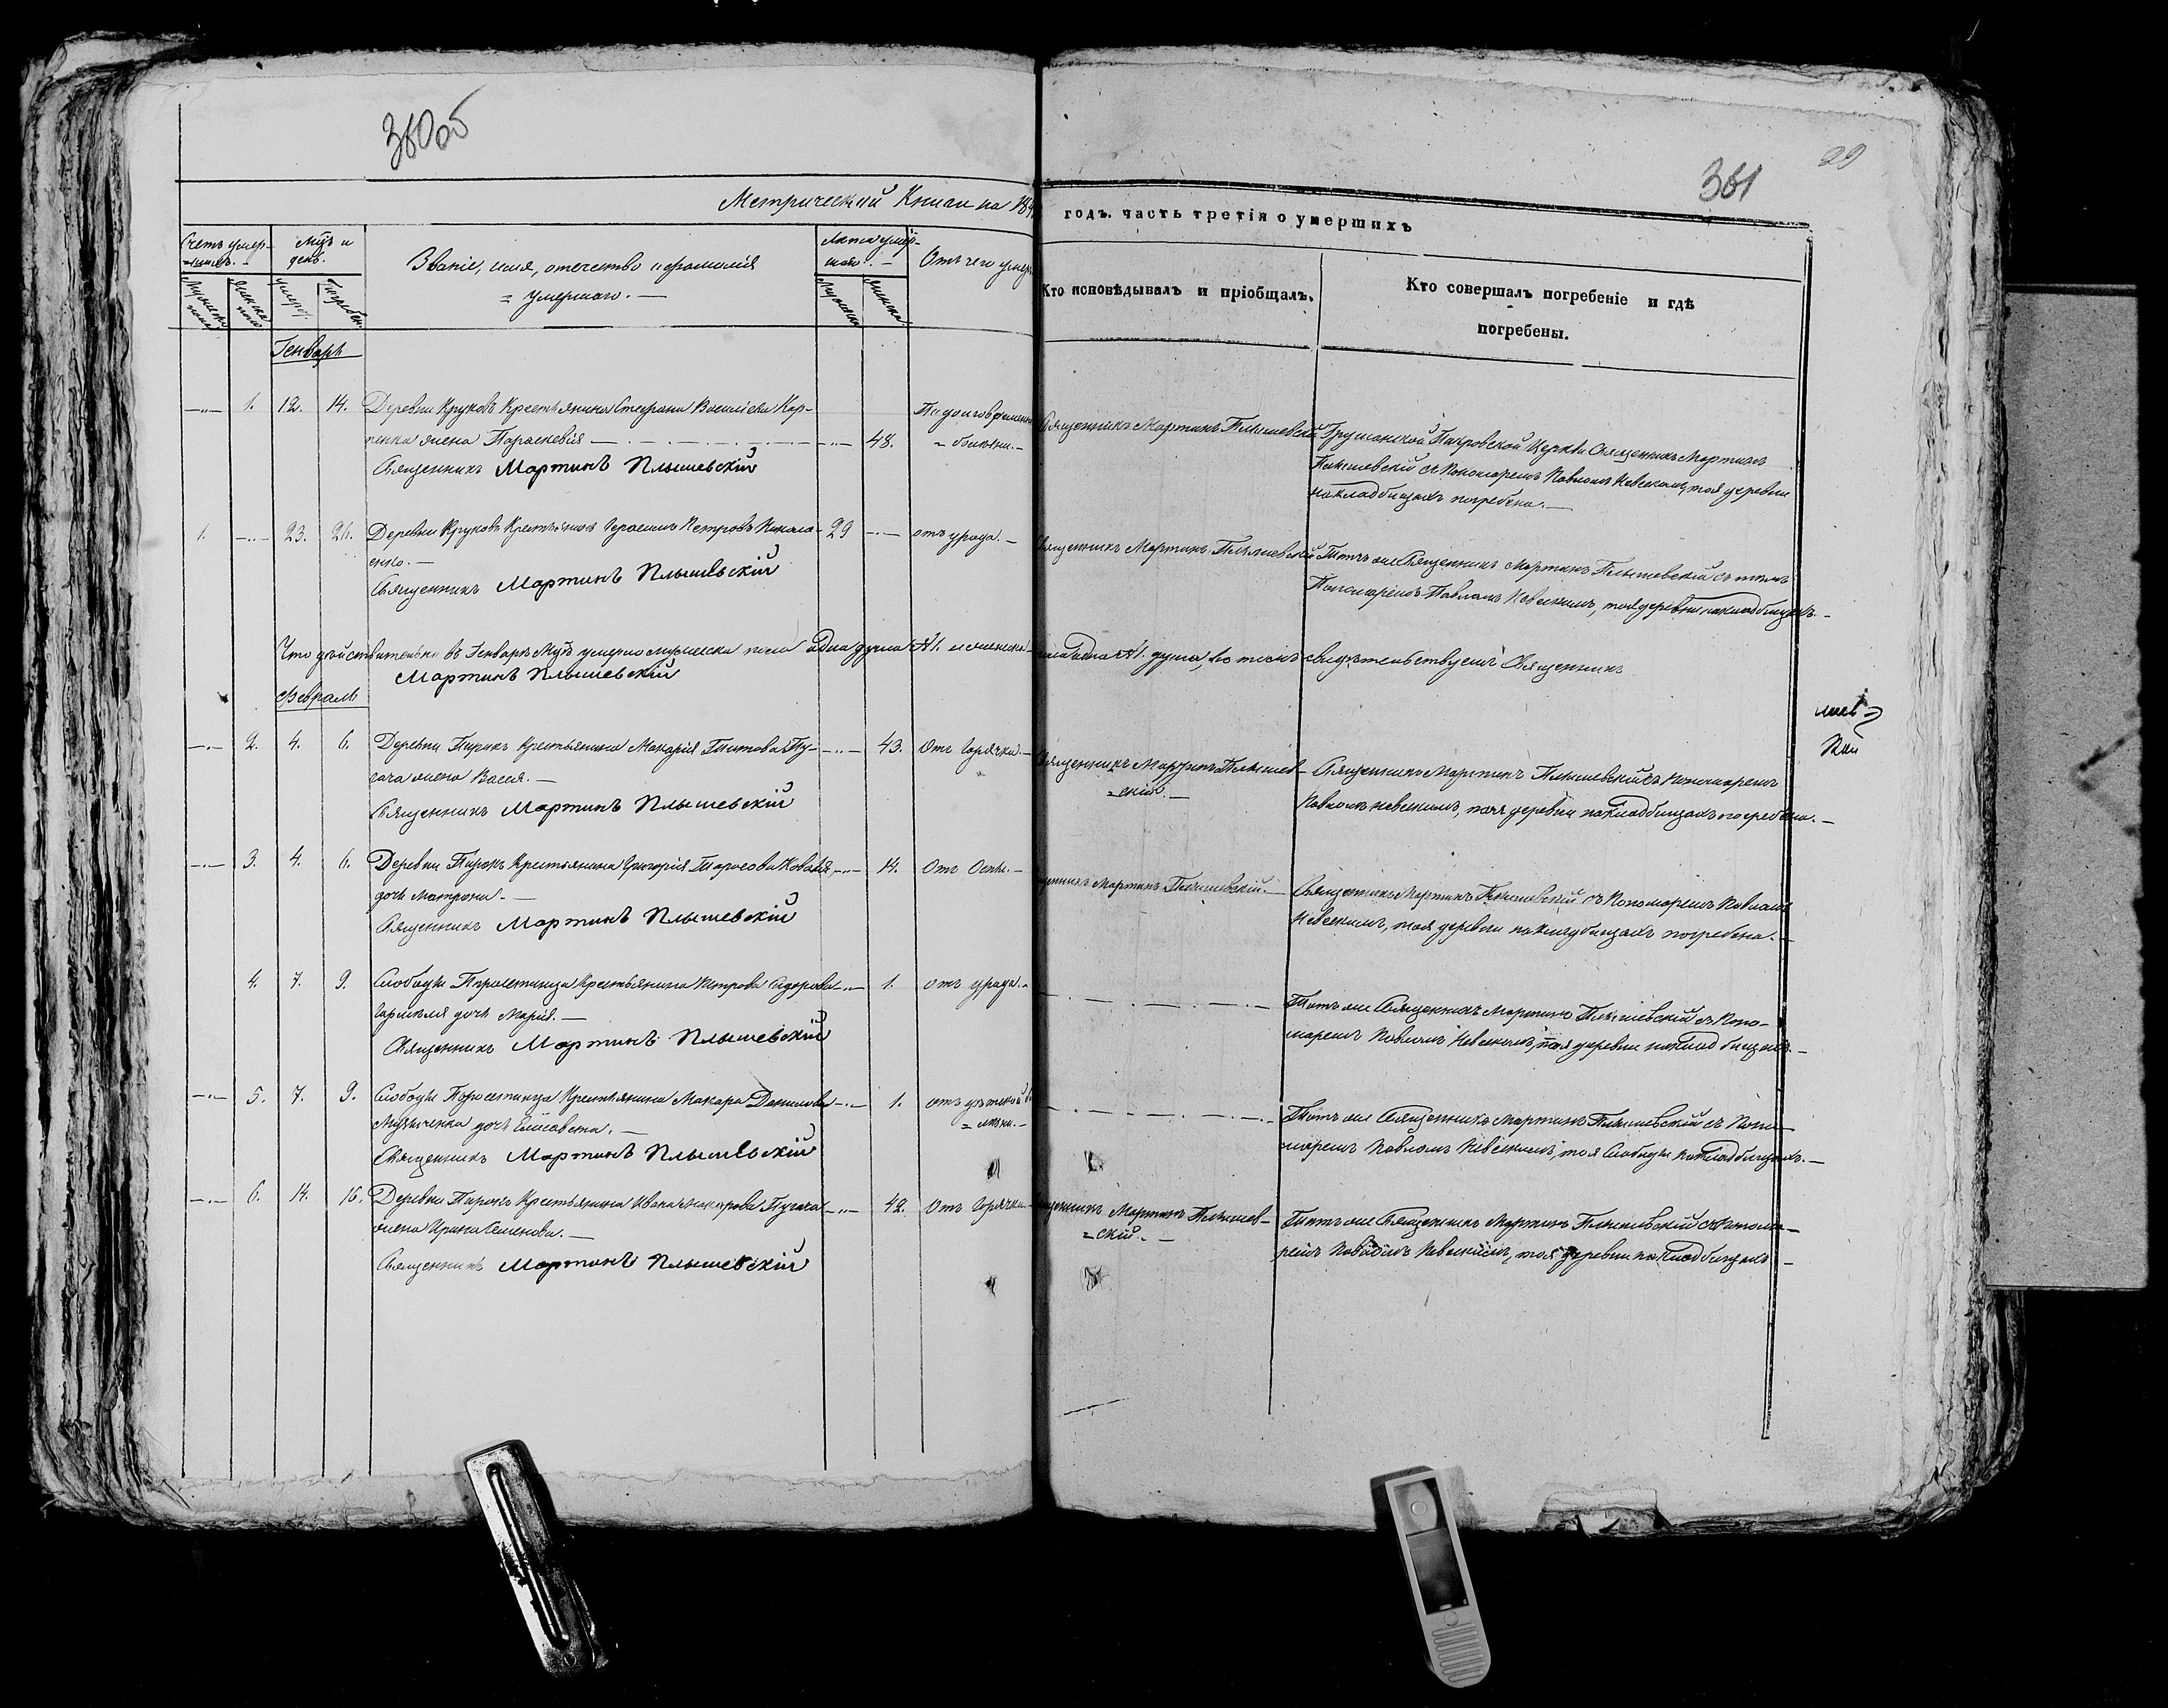 360об
361
29
Метрической Книги на 184
годъ. часть третія о умершихъ
Счетъ умер-
=шихъ. -
Мцъ и
день.
Званіе, имя, отечество и фамилія
= умершаго. —
Лета умер-
шаго. -
Отъ чего умеръ
Кто исповѣдывалъ и пріобщалъ.
Кто совершалъ погребеніе и гдѣ
погребены.
Мужеска
пола
Женска
пола
умерш.
Погребен.
Мужеска
Женска
Генварь
1. 12. 14. Деревни Круковъ Крестьянина Стефана Васильева Кар-
пенка жена Параскевія — 48.
По долговременн
= болезни. -
Священникъ Мартинъ Плышевскій
Священникъ Мартинъ Плышевскій
Грушанской Покровской Церкви Священникъ Мартинъ
Плышевскій съ Пономаремъ Павломъ Невескимъ, тоя деревни
на кладбищахъ погребена. —
1. 23. 26. Деревни Круковъ Крестьянинъ Герасимъ Петровъ Никола- 29 отъ урода. -
енко. —
Священникъ Мартинъ Плышевскій
Священникъ Мартинъ Плышевскій
Тотъ же Священникъ Мартинъ Плышевскій съ тѣмъ
Пономаремъ Павломъ Невескимъ, тоя деревни на кладбищахъ. —
Что действительно въ Генварѣ Мцѣ умерло мужеска пола одна душа №1. и женска пола одна №1. душа, въ томъ свидѣтельствуетъ Священникъ
Мартинъ Плышевскій
Февраль
2. 4. 6. Деревни Пирокъ Крестьянина Макарія Титова Пу- 43. Отъ Горячки. -
гача жена Васса. —
Священникъ Мартинъ Плышевскій
Священникъ Мартинъ Плышев-
=скій. —
Священникъ Мартинъ Плышевскій съ Пономаремъ
Павломъ Невескимъ, тоя деревни на кладбищахъ погребена. —
3. 4. 6. Деревни Пирокъ Крестьянина Григорія Тарасова Коваля 14. Отъ Оспы. -
дочь Матрона. —
Священникъ Мартинъ Плышевскій
щенникъ Мартинъ Плышевскій. —
Священникъ Мартинъ Плышевскій съ Пономаремъ Павломъ
Невескимъ, тоя деревни на кладбищахъ погребена. —
4. 7. 9. Слободы Поросятинца Крестьянина Петрова Сидорова 1. отъ урода. -
дочь Марія. —
Священникъ Мартинъ Плышевскій
Тотъ же Священникъ Мартинъ Плышевскій съ Поно-
маремъ Павломъ Невескимъ, тоя деревни на кладбищахъ. —
5. 7. 9. Слободы Поросятинца Крестьянина Макара Данилова 1. отъ дѣтской б
дочь Елисавета. —
= лѣзни. -
Священникъ Мартинъ Плышевскій
Тотъ же Священникъ Мартинъ Плышевскій съ Поно-
маремъ Павломъ Невескимъ, тоя Слободы на кладбищахъ. —
6. 14. 16. Деревни Пирокъ Крестьянина Ивана Макарова Пугача 42. Отъ Горячки
жена Ирина Семенова. —
Священникъ Мартинъ Плышевскій
щенникъ Мартинъ Плышев-
=скій. —
Тотъ же Священникъ Мартинъ Плышевскій съ Понома-
ремъ Павломъ Невескимъ, тоя деревни на кладбищахъ —